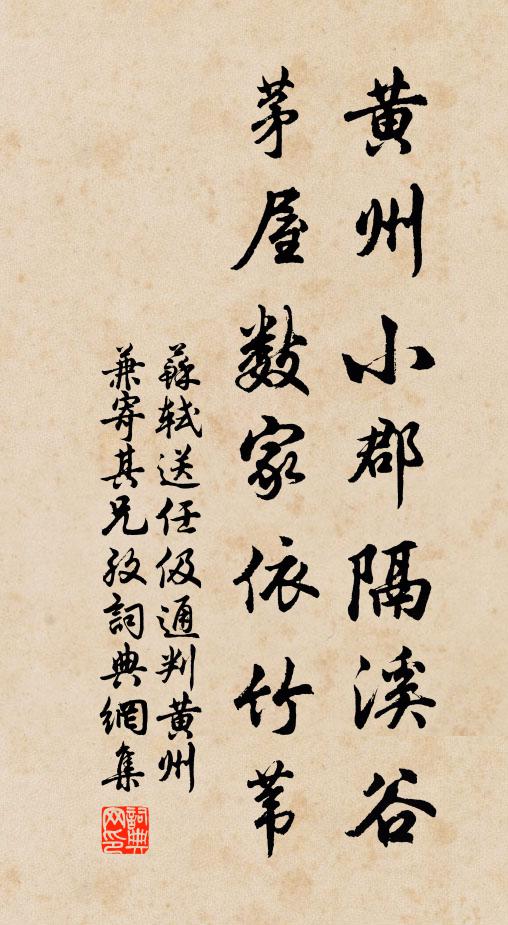 黄州小郡隔溪谷
茅屋数家依竹苇
蘇軾送任伋通判黄州
兼寄其兄孜詞典網集
詞典网印